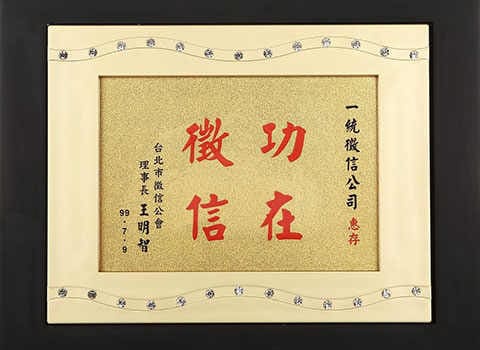 一統徵信公司 惠存
功在
徵信
台北市徵信公會
理事長 王明智
99·7·9